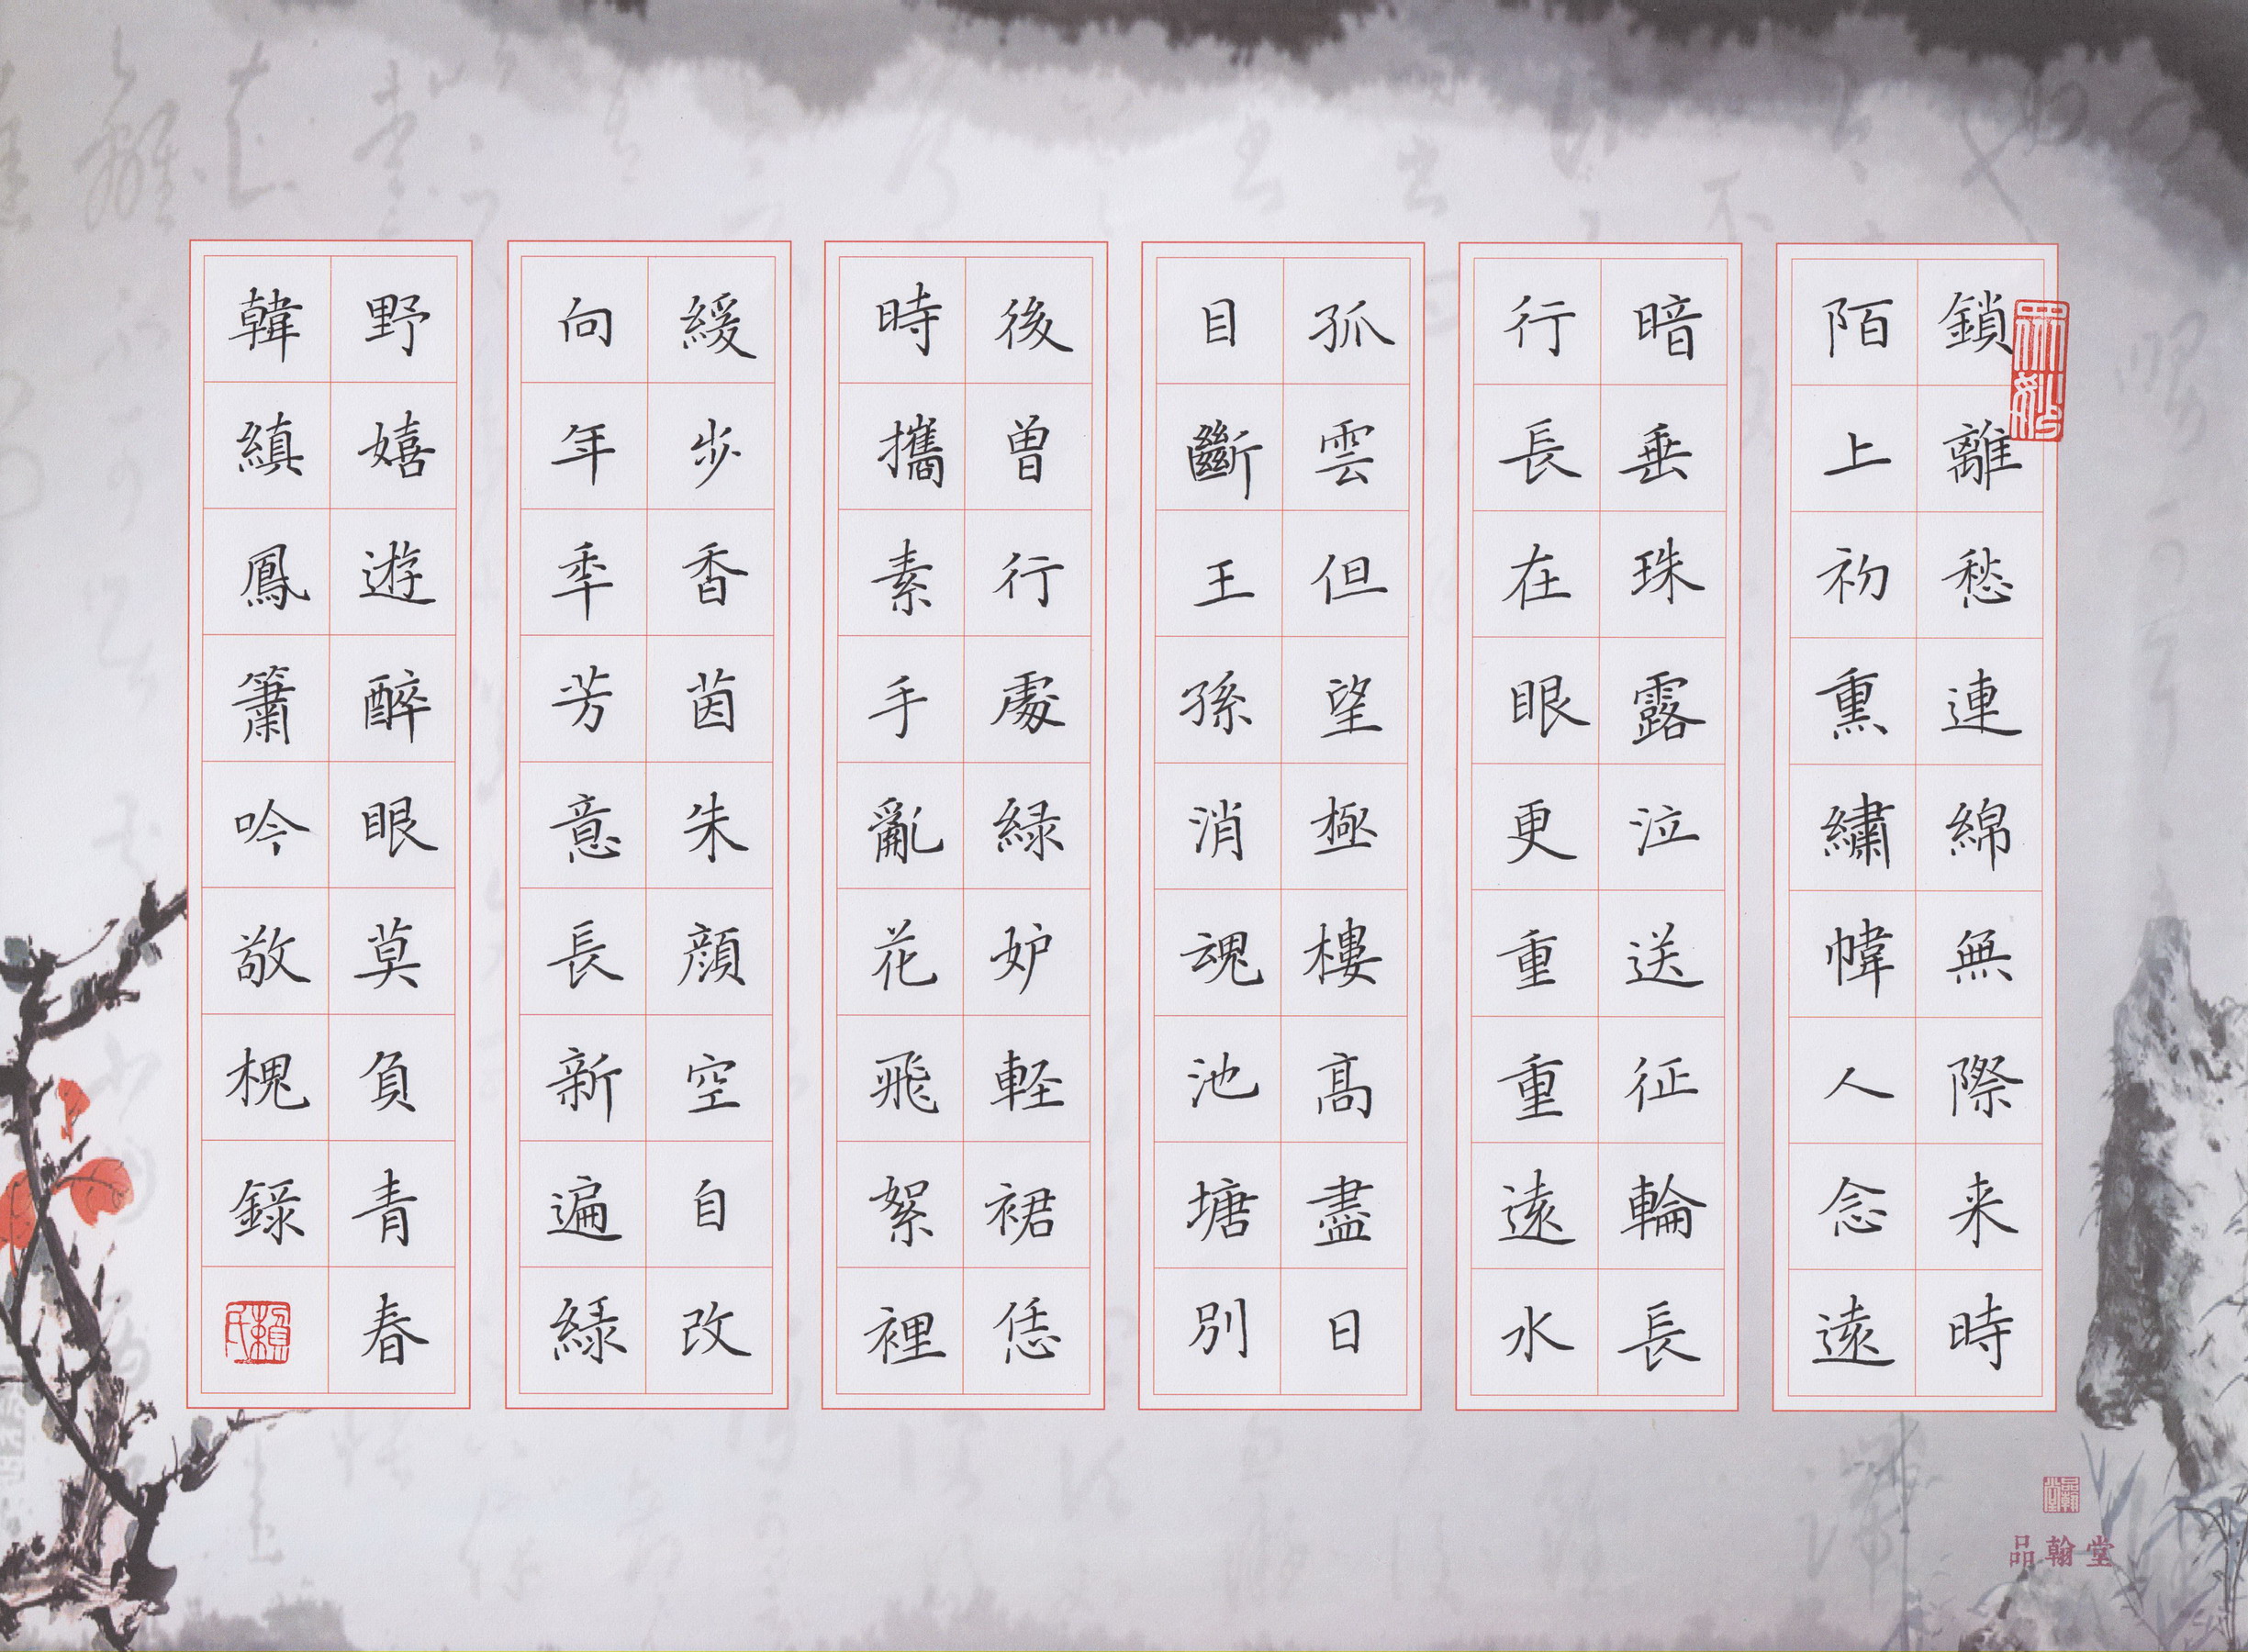 鎖離愁連綿無際来時
陌上初熏繡幃人念遠
暗垂珠露泣送征輪長
行長在眼更重重遠水
孤雲但望極樓高盡日
目斷王孫消魂池塘別
後曾行處緑妒軽裙恁
時攜素手亂花飛絮裡
緩步香茵朱顔空自改
向年年芳意長新遍緑
野嬉遊醉眼莫負青春
韓縝鳳簫吟敬槐錄
賴氏
品翰堂